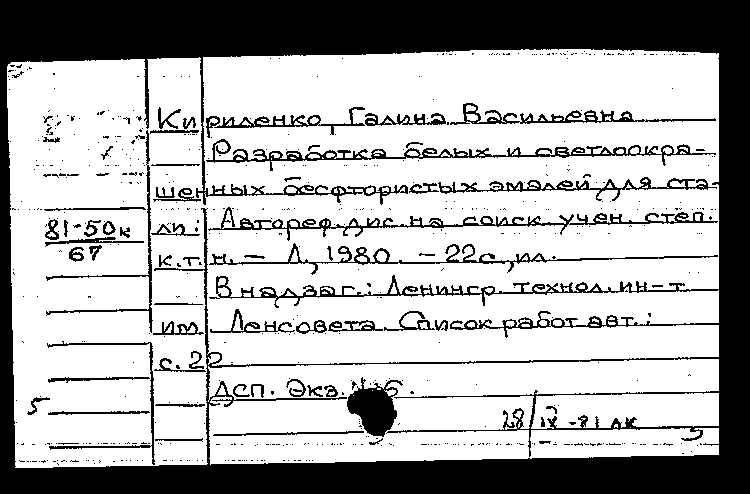 Кириленко, Галина Васильевна
Разработка белых и светлоокра-
шенных бесфтористых эмалей для ста-
81-50к
67
ли: Автореф. дис. на соиск. учен. степ.
к.т.н. – Л., 1980. – 22с., ил.
В надзаг.: Ленингр. технол. ин-т
им. Ленсовета. Список работ авт.:
с. 22.
Дсп. Экз.
5
28/IX -81 АК